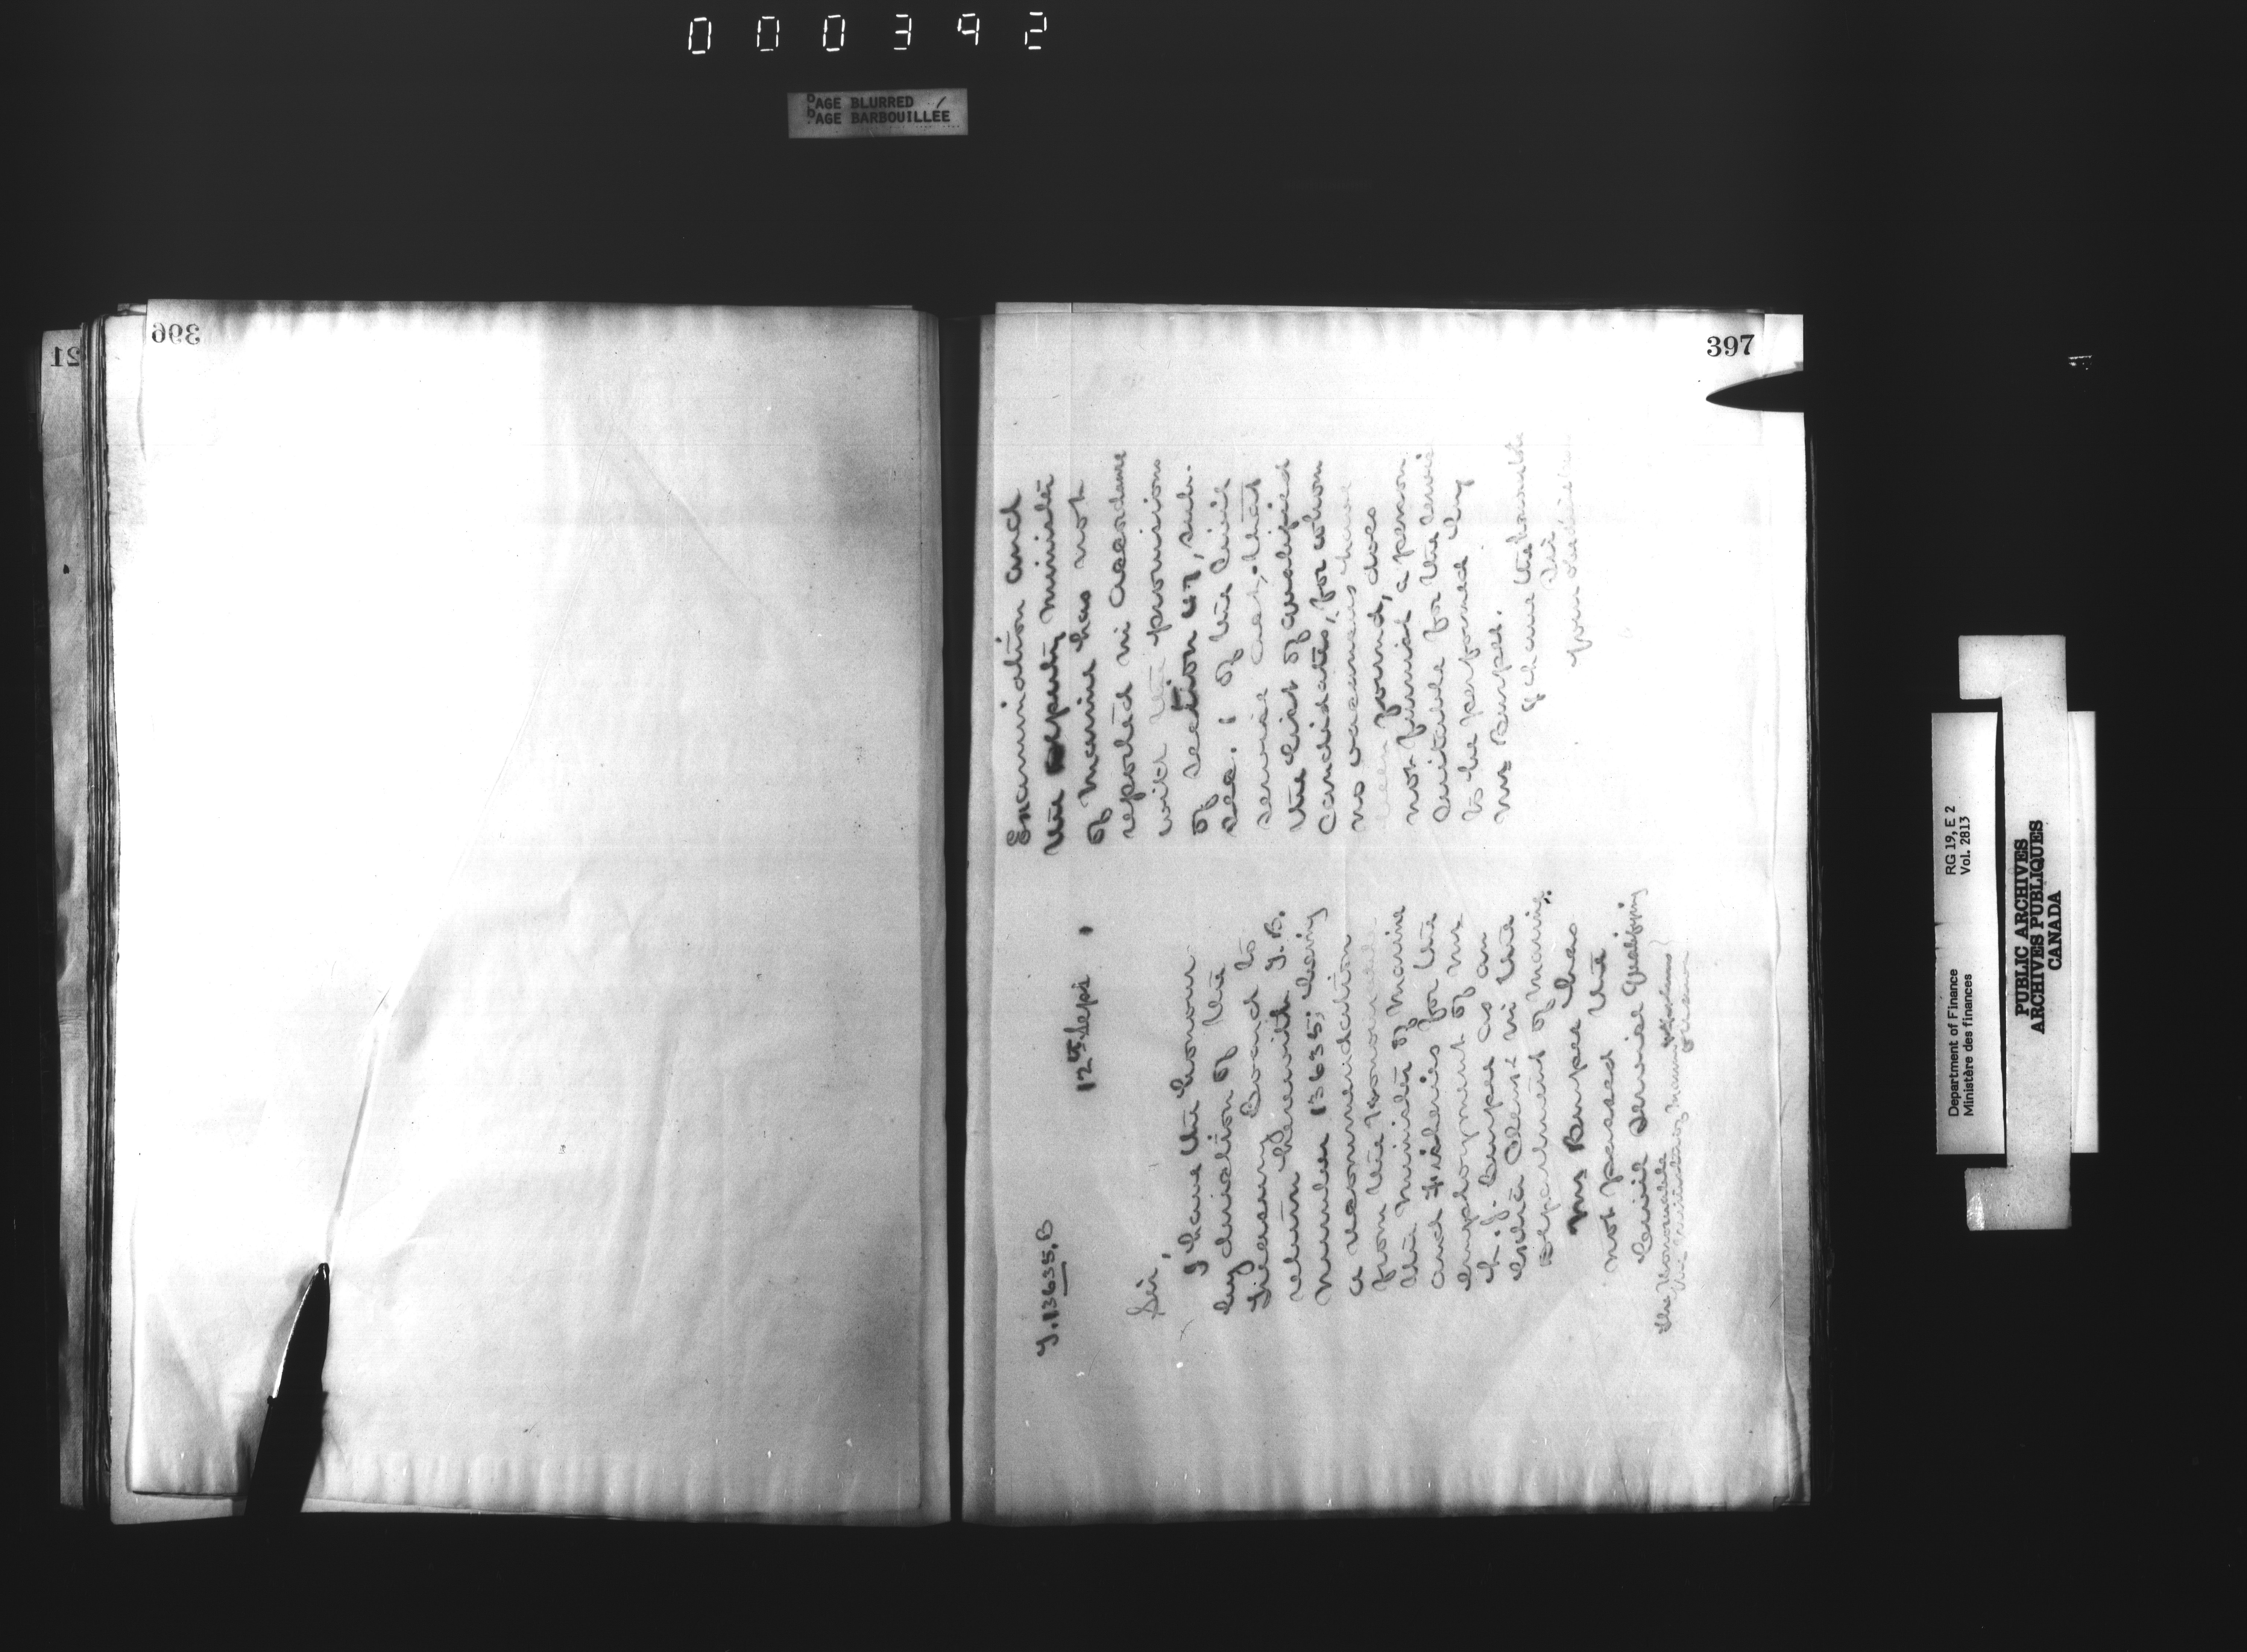 000392
PAGE BLURRED
PAGE BARBOUILLÉE
21
396
397
T. 13635. B
12th Sept
Sir,
I have the honour
by direction of the
Treasury Board to
return herewith T. B.
number 13635, being
a recommendation
from the Honourable
the Minister of Marine
and Fisheries for the
employment of Mr
Burpee as an
extra Clerk in the
Department of Marine.
Mr Burpee has
not passed the
Civil Service Qualifying
The Honourable
Examination and
the Deputy Minister
of Marine has not
reported in accordance
with the provisions
of section 47, sub.
sec. 1 of the Civil
Service Act, that
the list of qualified
candidates, for whom
no vacancies have
been found, does
not furnish a person
suitable for the service
to be performed by
Mr Burpee.
I have the honour to be
Sir
Your obedient
Department of Finance
Ministère des finances
RG 19, E 2
Vol. 2813
PUBLIC ARCHIVES
ARCHIVES PUBLIQUES
CANADA